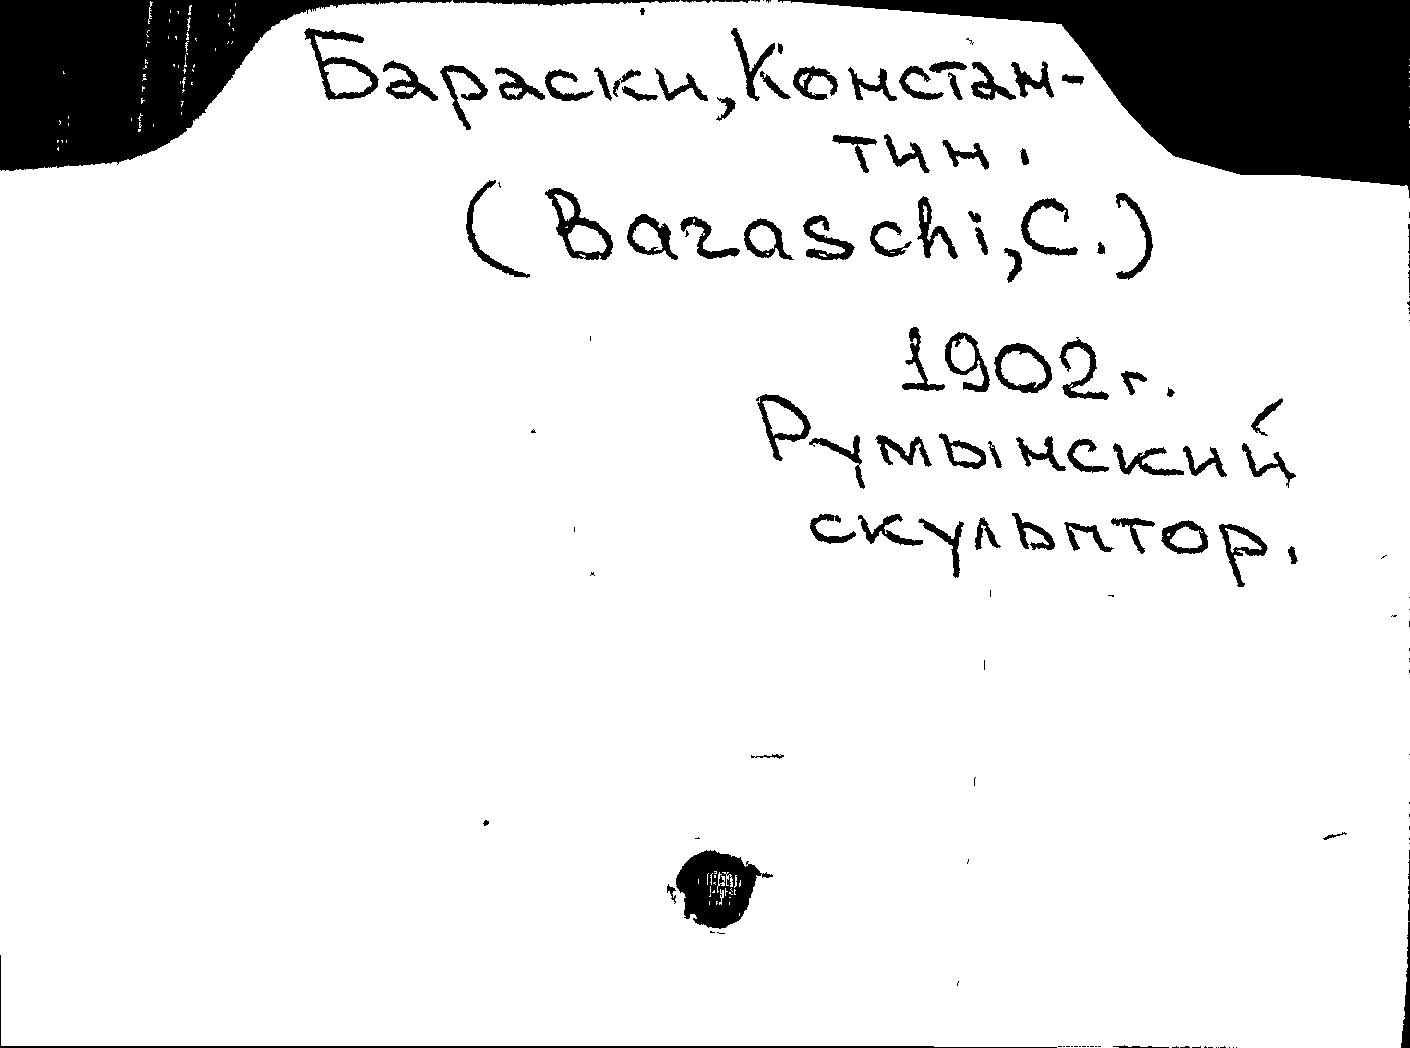 Бараски, Констан-
тин.
(Baraschi, C.)
1902 г.
Румынский
скульптор.